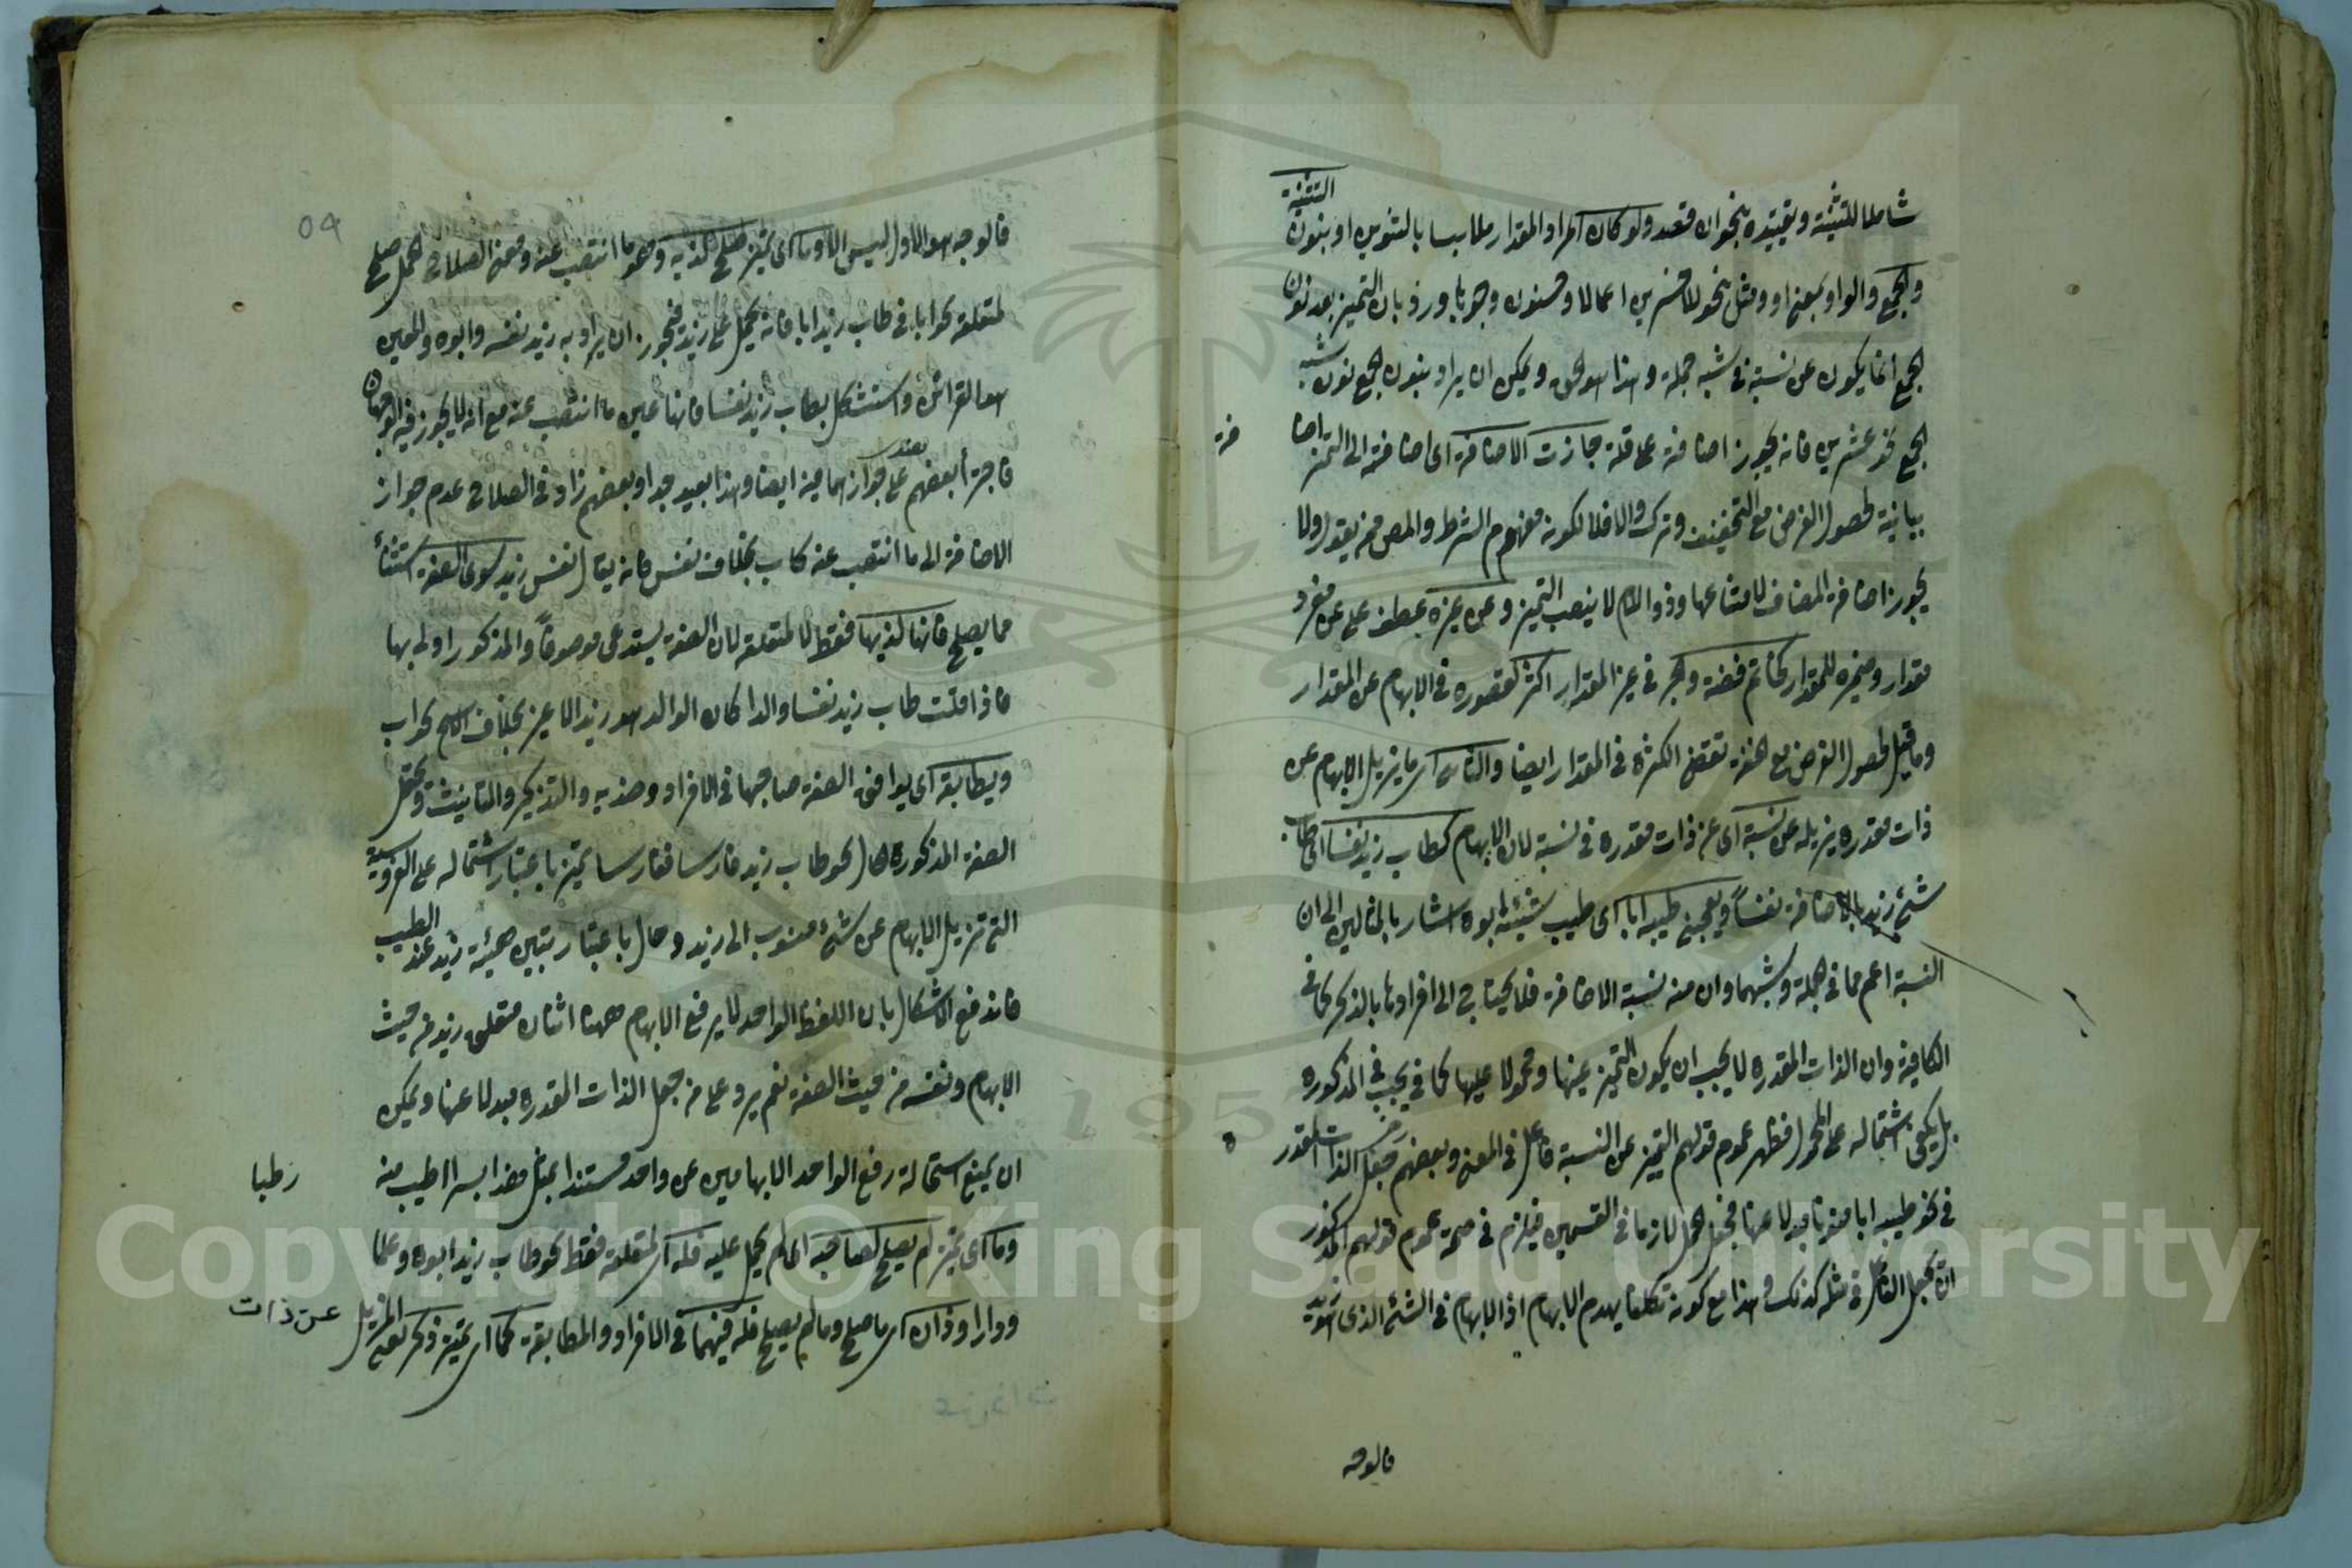 شاملا للتثنية وتقييده بنحوان قعد ولو كان المراد والمقدار ملابسا بالتنوين او بنون التثنية
والجمع والواو بمعنى او ومثل نحو الاخسرين اعمالا وحسنون وجوها ورد بان التميز بعد نون
الجمع انما يكون عن نسبة في شبه جملة وهذا هو الحق ويمكن ان يراد بنون الجمع نون شبه
الجمع نحو عشرين فانه يجوز اضافته على قلة جازت الاضافة اى اضافته الى التميز اضا
فة
بيانية لحصول الغرض مع التخفيف وترك والا فلا لكونه مفهوم الشرط والمص ممن يقول ولا
يجوز اضافة المضاف لامتناعها وذو اللام لا ينصب التميز وعن غيره عطف على عن مفرد
مقدار وضميره للمقدار كخاتم فضة والجر في غير المقدار اكثر لقصوره في الابهام عن المقدار
وما قيل لحصول الغرض مع خفة تقتضى الكثرة في المقدار ايضا والثانى اى ما يزيل الابهام عن
ذات مقدرة يزيله عن نسبة اى عن ذات مقدرة في نسبة لان الابهام كطاب زيد نفسا اى طاب
شئ زيد بالاضافة نفسا ويعجبنى طيبه ابا اى طيب شيئه ابوه اشار بالمثالين الى ان
النسبة اعم مما في جملة وشبهها وان منه نسبة الاضافة فلا يحتاج الى افرادها بالذكر كما في
الكافية وان الذات المقدرة لا يجب ان يكون التميز عينها ومحمولا عليها كما في يجب في المذكورة
بل يكفى اشتماله على المحمول فظهر عموم قولهم التميز عن النسبة فاعل في المعنى وبعضهم جعل الذات المقدر
ة
في نحو طيبه ابا منويا مبدلا عنها فجعل الحمل لازما في القسمين فيلزم في صحة عموم قولهم المذكور
ان يجعل الفاعل في مثله كذلك وهذا مع كونه تكلفا يهدم الابهام اذ الابهام في الشئ الذى هو زيد
فالوجه
04
فالوجه هو الاول ليس الا وما اى تميز صلح لذيه وهو ما انتصب عنه ومعنى الصلاح الحمل صلح
لمتعلقه نحو ابا في طاب زيد ابا فانه يحمل على زيد فيجوز ان يراد به زيد نفسه وابوه والمعين
هو القرائن واستشكل بطاب زيد نفسا فانها عين ما انتصب عنه مع انه لا يجوز فيه الوجهان
فاجترأ بعضهم على جوازهما فيه ايضا وهذا بعيد جدا وبعضهم زاد في الصلاح عدم جواز
الاضافة الى ما انتصب عنه كاب بخلاف نفس فانه يقال نفس زيد سوى الصفة استثناء
مما يصلح فانها لذيها فقط لا لمتعلقه لان الصفة يستدعى موصوفا والمذكور اولى بها
فاذا قلت طاب زيد نفسا والدا كان الوالد هو زيد لا غير بخلاف الاسم نحو اب
ويطابقه اى يوافق الصفة صاحبها في الافراد وضديه والتذكير والتانيث ويحتمل
الصفة المذكورة الحال نحو طاب زيد فارسا ففارسا تميز باعتبار اشتماله على الفروسية
التى تزيل الابهام عن شئ منسوب الى زيد وحال باعتبار تبيين هيئة زيد عند الطيب
فاندفع الاشكال بان اللفظ الواحد لا يرفع الابهام وههنا اثنان متعلق زيد من حيث
الابهام ونفسه من حيث الصفة نعم يرد على من جعل الذات المقدرة مبدلا عنها ويمكن
ان يمنع استحالة رفع الواحد الابهامين عن واحد مستندا بمثل هذا بسرا اطيب منه
رطبا
وما اى تميز لم يصلح لصاحبه اى لم يحمل عليه فله اى لمتعلقه فقط نحو طاب زيد ابوة وعلما
ودارا وذان اى ما صلح وما لم يصلح فله فيهما في الافراد والمطابقة كما اى تميز ذكر بعنى المزيل
عن ذات